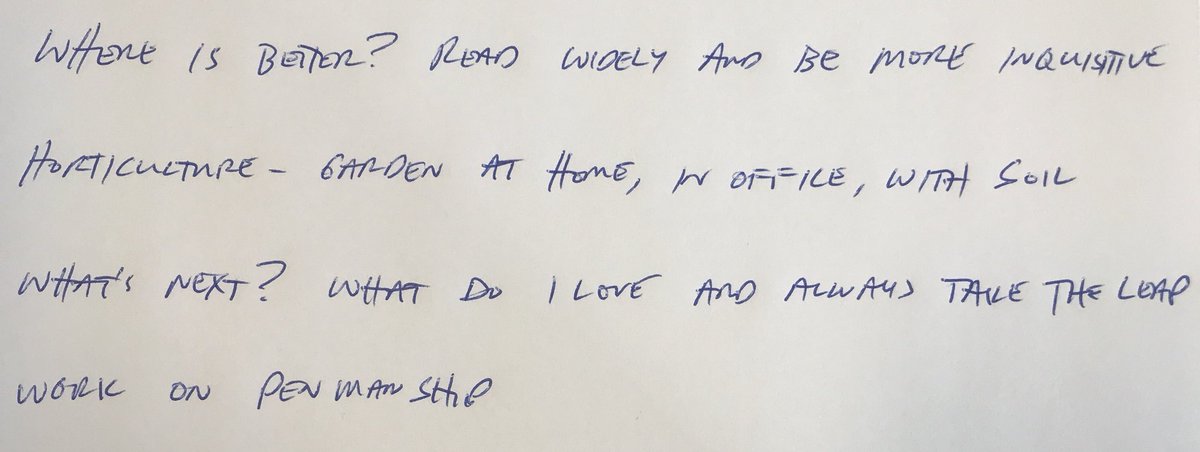 WHERE IS BETTER? READ WIDELY AND BE MORE INQUISITIVE
HORTICULTURE - GARDEN AT HOME, IN OFFICE, WITH SOIL
WHAT'S NEXT? WHAT DO I LOVE AND ALWAYS TAKE THE LEAP
WORK ON PENMANSHIP